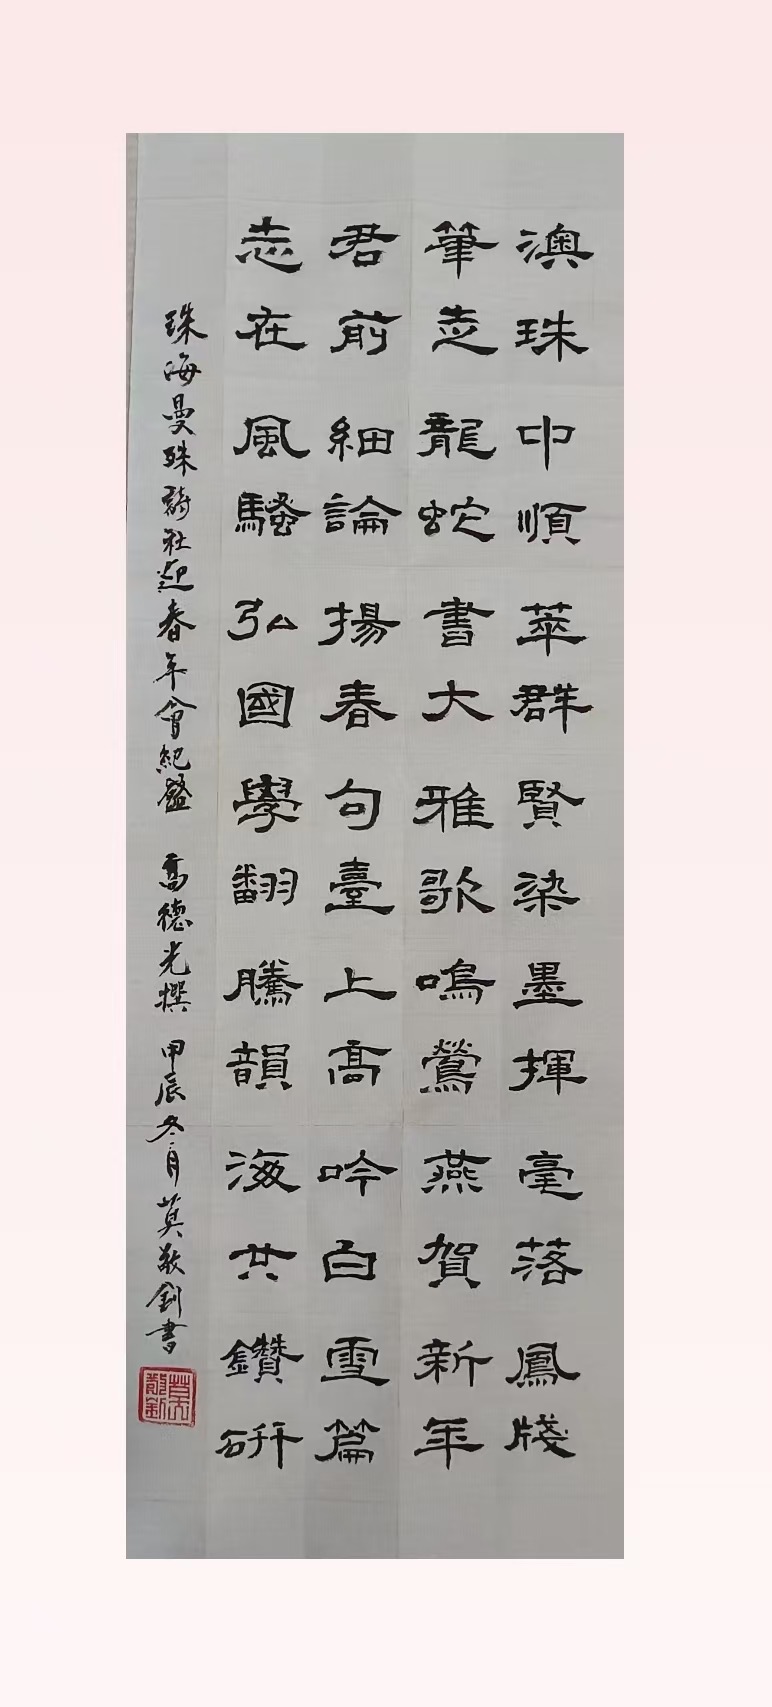 澳珠中順萃群賢染墨揮毫落鳳牋
筆走龍蛇書大雅歌鳴鶯燕賀新年
君前細論揚春句臺上高吟白雪篇
志在風騷弘國學翻騰韻海共鑽研
珠海曼殊詩社迎春年會紀盛 高德光撰 甲辰冬月莫敬釗書
莫敬釗